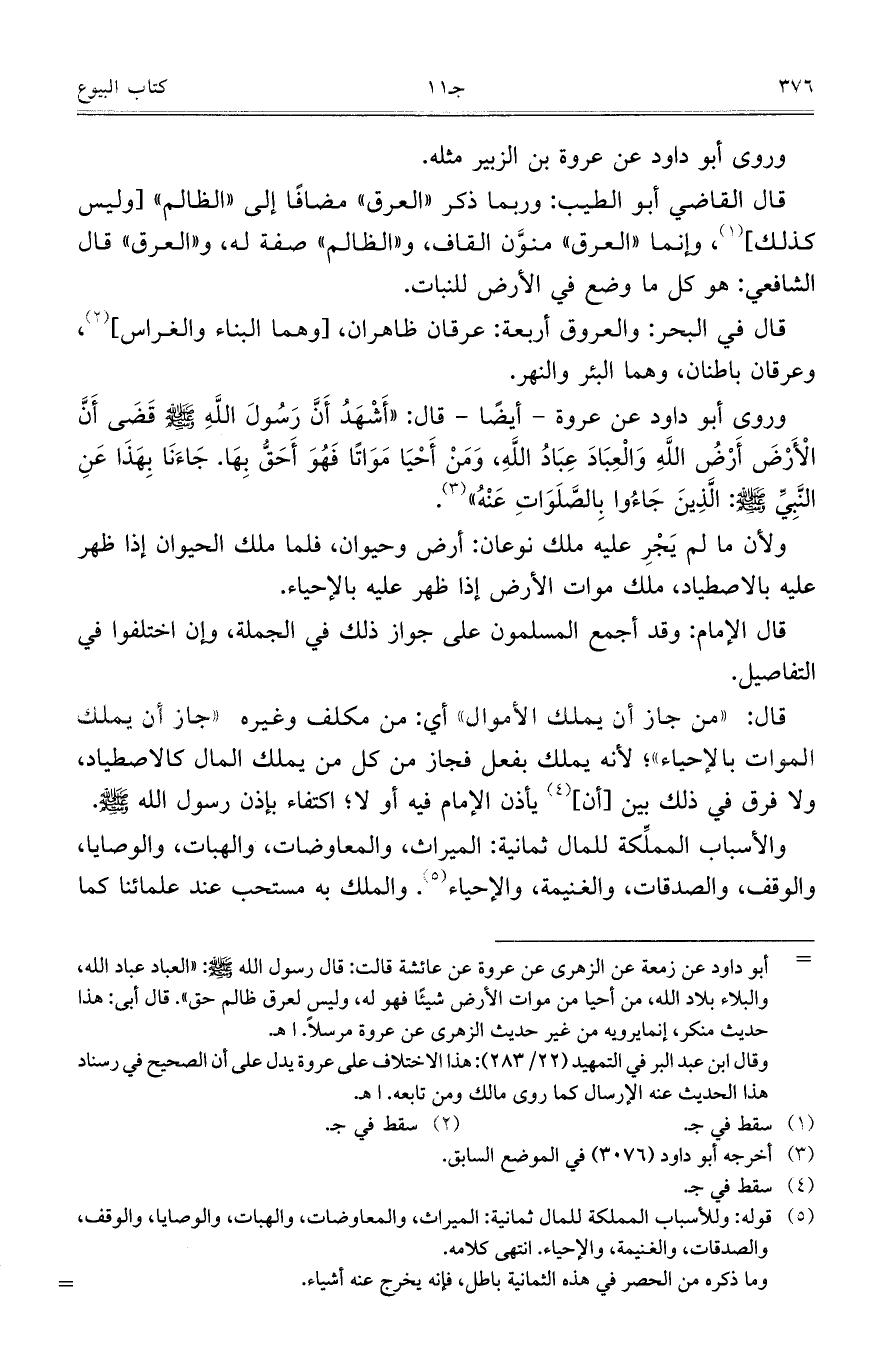 ٣٧٦ جـ١١ كتاب البيوع
وروى أبو داود عن عروة بن الزبير مثله.
قال القاضي أبو الطيب: وربما ذكر «العرق» مضافًا إلى «الظالم» [وليس
كذلك](١)، وإنما «العرق» منوَّن القاف، و«الظالم» صفة له، و«العرق» قال
الشافعي: هو كل ما وضع في الأرض للنبات.
قال في البحر: والعروق أربعة: عرقان ظاهران، [وهما البناء والغراس](٢)،
وعرقان باطنان، وهما البئر والنهر.
وروى أبو داود عن عروة - أيضًا - قال: «أَشْهَدُ أَنَّ رَسُولَ اللَّهِ ﷺ قَضَى أَنَّ
الْأَرْضَ أَرْضُ اللَّهِ وَالْعِبَادَ عِبَادُ اللَّهِ، وَمَنْ أَحْيَا مَوَاتًا فَهُوَ أَحَقُّ بِهَا. جَاءَنَا بِهَذَا عَنِ
النَّبِيِّ ﷺ: الَّذِينَ جَاءُوا بِالصَّلَوَاتِ عَنْهُ»(٣).
ولأن ما لم يَجْرِ عليه ملك نوعان: أرض وحيوان، فلما ملك الحيوان إذا ظهر
عليه بالاصطياد، ملك موات الأرض إذا ظهر عليه بالإحياء.
قال الإمام: وقد أجمع المسلمون على جواز ذلك في الجملة، وإن اختلفوا في
التفاصيل.
قال: «من جاز أن يملك الأموال» أي: من مكلف وغيره «جاز أن يملك
الموات بالإحياء»؛ لأنه يملك بفعل فجاز من كل من يملك المال كالاصطياد،
ولا فرق في ذلك بين [أن](٤) يأذن الإمام فيه أو لا؛ اكتفاء بإذن رسول الله ﷺ.
والأسباب المملِّكة للمال ثمانية: الميراث، والمعاوضات، والهبات، والوصايا،
والوقف، والصدقات، والغنيمة، والإحياء(٥). والملك به مستحب عند علمائنا كما
= أبو داود عن زمعة عن الزهرى عن عروة عن عائشة قالت: قال رسول الله ﷺ: «العباد عباد الله،
والبلاء بلاد الله، من أحيا من موات الأرض شيئًا فهو له، وليس لعرق ظالم حق». قال أبى: هذا
حديث منكر، إنمايرويه من غير حديث الزهرى عن عروة مرسلاً. ا هـ.
وقال ابن عبد البر في التمهيد (٢٢/ ٢٨٣): هذا الاختلاف على عروة يدل على أن الصحيح في رسناد
هذا الحديث عنه الإرسال كما روى مالك ومن تابعه. ا هـ.
(١) سقط في جـ. (٢) سقط في جـ.
(٣) أخرجه أبو داود (٣٠٧٦) في الموضع السابق.
(٤) سقط في جـ.
(٥) قوله: وللأسباب المملكة للمال ثمانية: الميراث، والمعاوضات، والهبات، والوصايا، والوقف،
والصدقات، والغنيمة، والإحياء. انتهى كلامه.
وما ذكره من الحصر في هذه الثمانية باطل، فإنه يخرج عنه أشياء. =